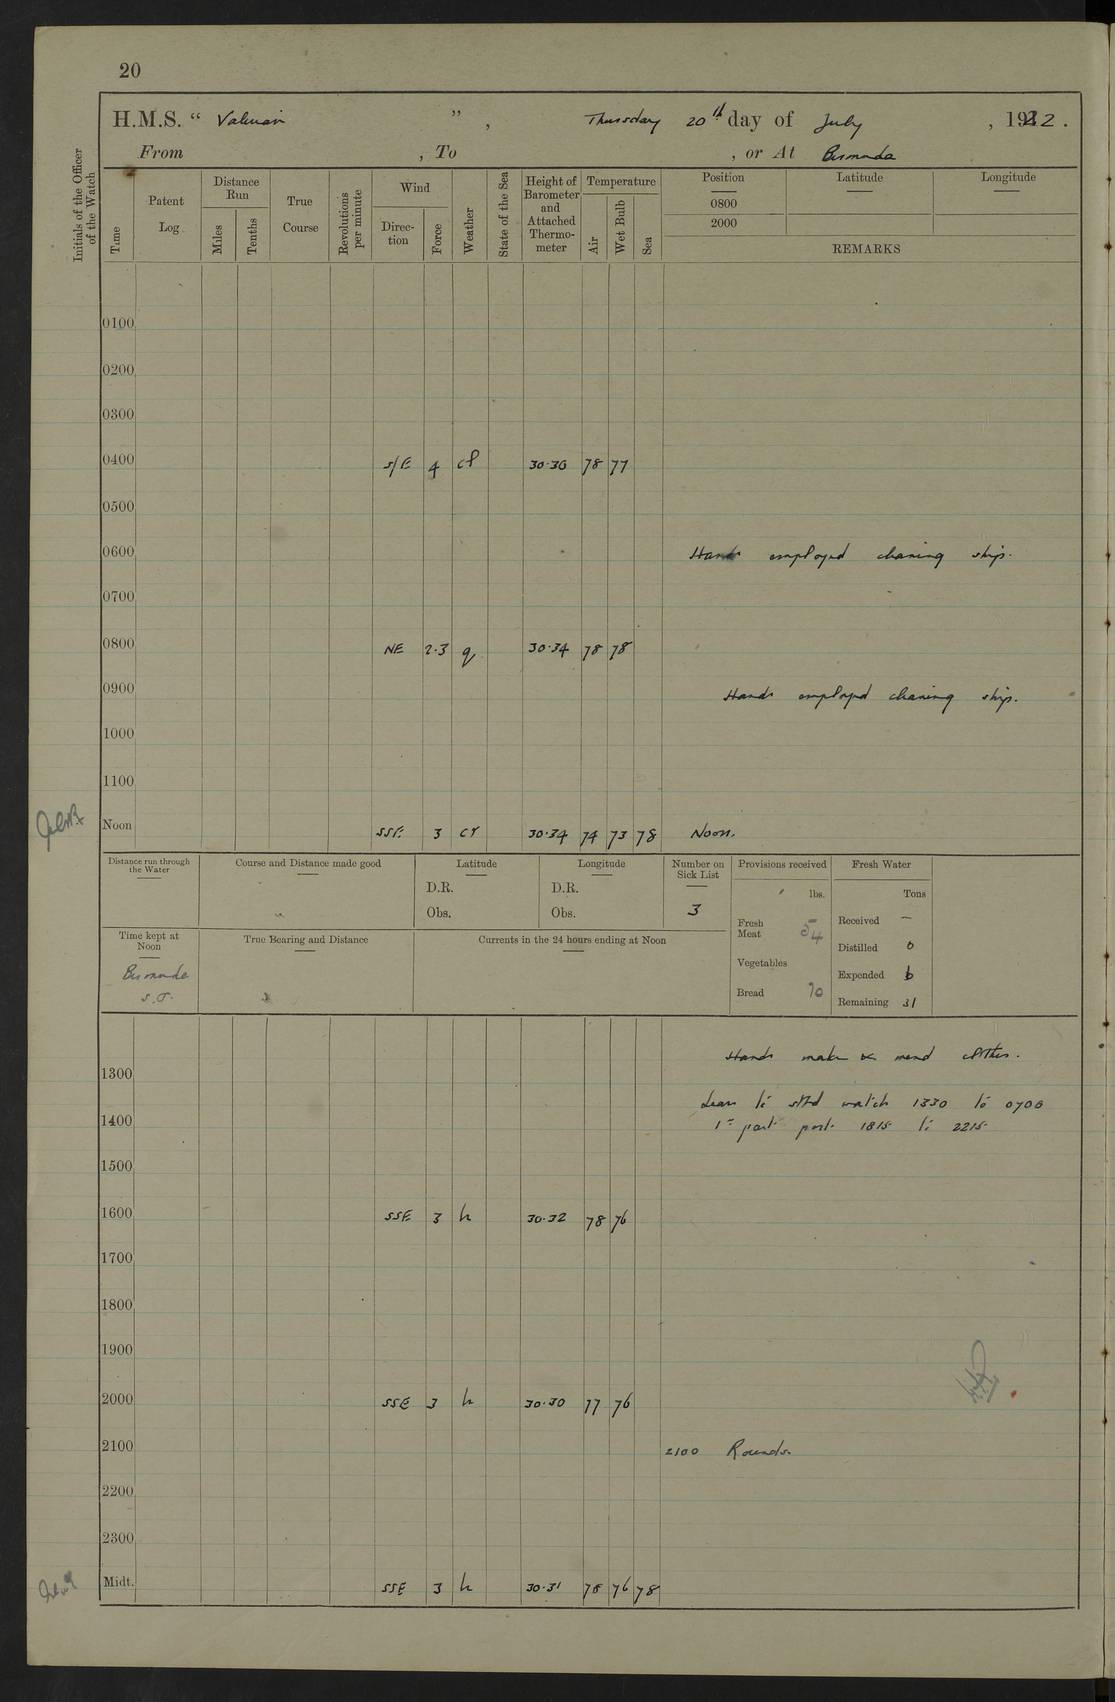 20
H.M.S. " Valerian " , Thursday 20th day of July , 1922.
From , To , or At Bermuda
Initials of the Officer of the Watch
Time
Patent Log.
Distance Run
Miles
Tenths
True Course
Revolutions per minute
Wind
Direction
Force
Weather
State of the Sea
Height of Barometer and Attached Thermometer
Temperature
Air
Wet Bulb
Sea
Position
0800
2000
Latitude
Longitude
REMARKS
0100
0200
0300
0400 S/E 4 30·36 78 77
0500
0600 Hands employed cleaning ship.
0700
0800 NE 2·3 q 30·34 78 78
0900 Hands employed cleaning ship.
1000
1100
Noon SSE 3 cr 30·34 74 73 78 Noon.
Distance run through the Water
Course and Distance made good
Latitude
D.R.
Obs.
Longitude
D.R.
Obs.
Number on Sick List
3
Provisions received
lbs.
Fresh Meat 54
Vegetables
Bread 70
Fresh Water
Tons
Received —
Distilled 0
Expended 6
Remaining 31
Time kept at Noon
Bermuda
S.T.
True Bearing and Distance
Currents in the 24 hours ending at Noon
Hands make & mend clothes.
1300
Leave to stbd watch 1330 to 0700
1400 1st part port 1815 to 2215
1500
1600 SSE 3 h 30·32 78 76
1700
1800
1900
2000 SSE 3 h 30·30 77 76
2100 2100 Rounds.
2200
2300
Midt. SSE 3 h 30·31 78 76 78